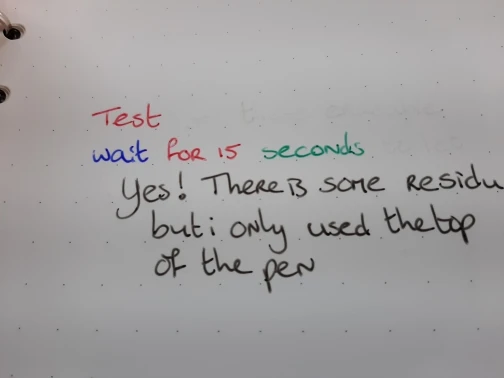 Test
wait for 15 seconds
Yes! There is some residu
but i only used the top
of the pen